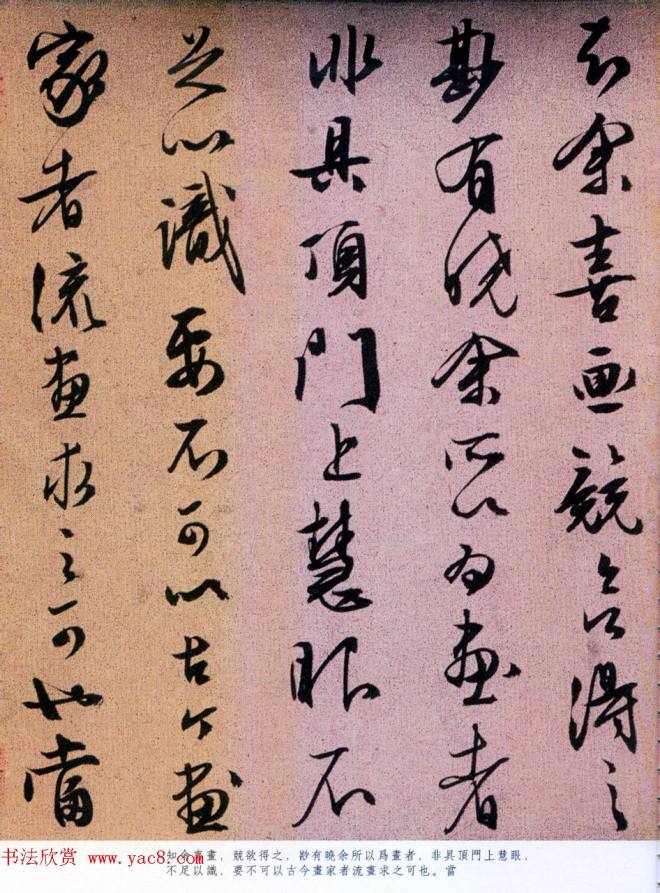 知余喜画競欲得之
尠有曉余所以為畫者
非具頂門上慧眼不
足以識要不可以古今畫
家者流畫求之可也當
知余喜畫，競欲得之，尠有曉余所以爲畫者，非具頂門上慧眼，
不足以識，要不可以古今畫家者流畫求之可也。當
书法欣赏 www.yac8.com